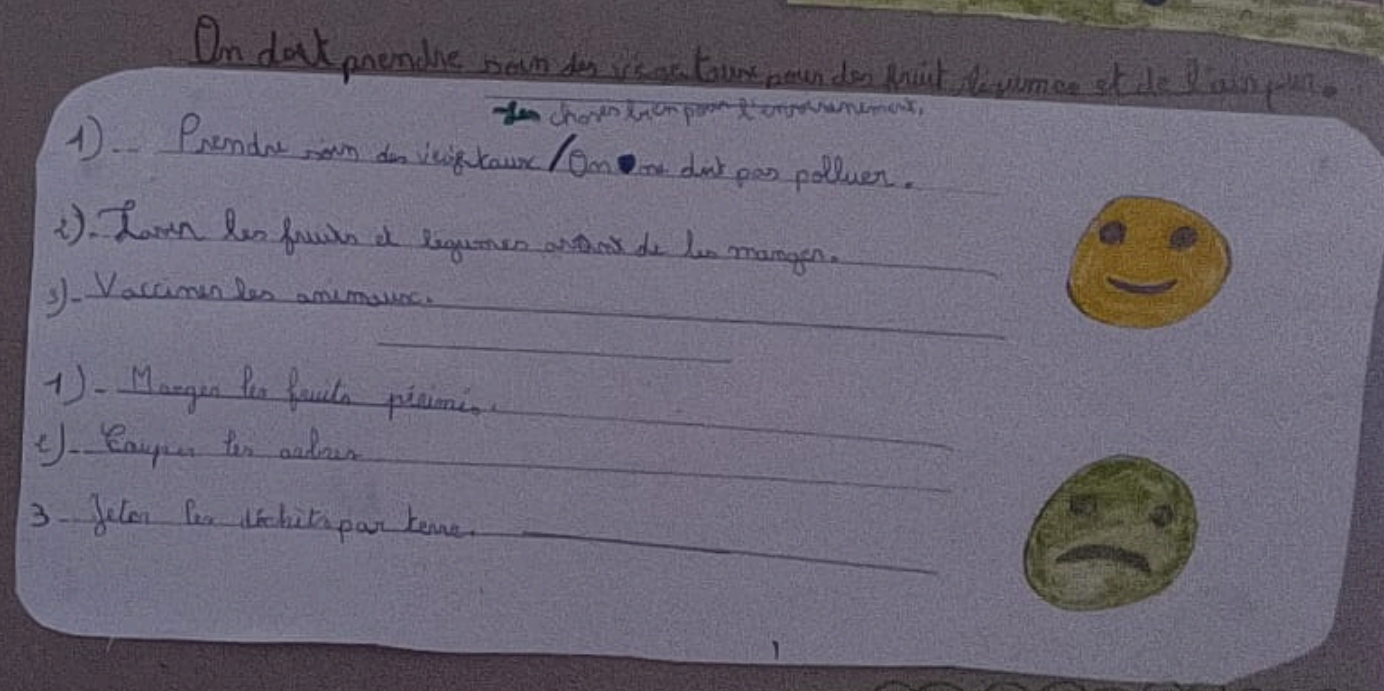 On doit prendre soin des végétaux pour des fruit légumes et de l'air pur.
Les choses bien pour l'environnement.
1)- Prendre soin des végétaux / On ne doit pas polluer.
2)- Laver les fruits et légumes avant de les manger.
3)- Vacciner les animaux.
1)- Manger les fruits périmés.
2)- Couper les arbres
3- Jeter les déchets par terre.
1